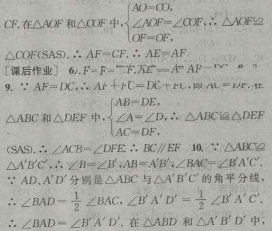 AO=CO,
CF. 在△AOF 和△COF 中, ∠AOF=∠COF, ∴ △AOF≌
OF=OF,
△COF(SAS). ∴ AF=CF. ∴ AE=AF
[课后作业] 6.
9. ∵ AF=DC, ∴
△ABC 和△DEF 中, AB=DE, ∠A=∠D, AC=DF, ∴ △ABC≌△DEF
(SAS). ∴ ∠ACB=∠DFE. ∴ BC∥EF 10. ∵ △ABC≌
△A'B'C', ∴ ∠B=∠B', AB=A'B', ∠BAC=∠B'A'C'.
∵ AD、A'D'分别是△ABC 与△A'B'C'的角平分线,
∴ ∠BAD=1/2∠BAC, ∠B'A'D'=1/2∠B'A'C'.
∴ ∠BAD=∠B'A'D'. 在△ABD 和△A'B'D'中,